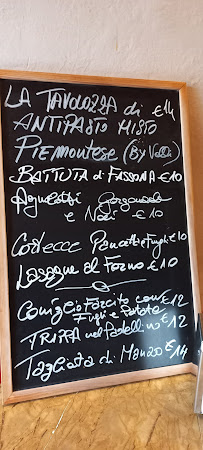 LA TAVOLOZZA di €14
ANTIPASTO MISTO
PIEMONTESE (By Valli)
BATTUTA di FASSONA €10
Agnolotti Gorgonzola
e Noci €10
Cortecce Pancetta e Funghi €10
Lasagne al Forno €10
Coniglio Farcito con €12
Funghi e Patate
TRIPPA nel Padellino €12
Tagliata di Manzo €14